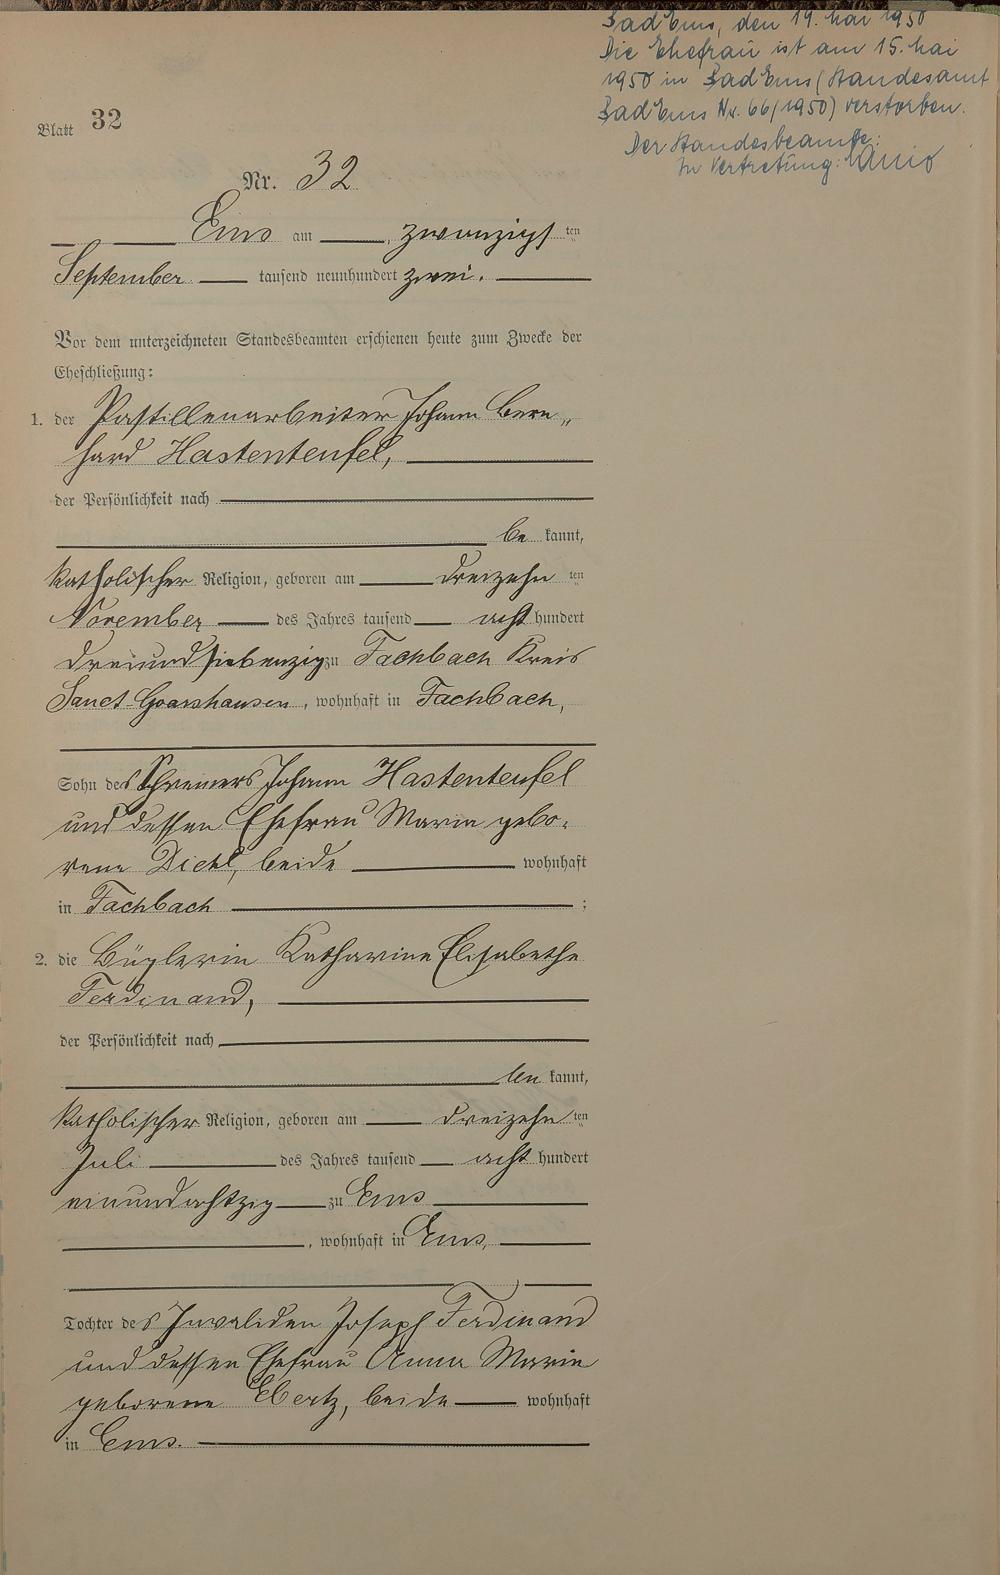 Bad Ems, den 19. Mai 1950
Die Ehefrau ist am 15. Mai
1950 in Bad Ems (Standesamt
Bad Ems Nr. 66/1950) verstorben.
Der Standesbeamte:
In Vertretung:
Blatt 32
Nr. 32
Ems am zwanzigsten
September tausend neunhundert zwei.
Vor dem unterzeichneten Standesbeamten erschienen heute zum Zwecke der
Eheschließung:
1. der Pastillenarbeiter Johann Bern„
hard Hastenteufel,
der Persönlichkeit nach
be kannt,
katholischer Religion, geboren am dreizehn ten
November des Jahres tausend acht hundert
dreiundsiebenzig zu Fachbach Kreis
Sanct-Goarshausen, wohnhaft in Fachbach,
Sohn des Schreiners Johann Hastenteufel
und dessen Ehefrau Maria gebo-
rene Diehl, beide wohnhaft
in Fachbach ;
2. die Büglerin Katharine Elisabethe
Ferdinand,
der Persönlichkeit nach
kannt,
katholischer Religion, geboren am dreizehn ten
Juli des Jahres tausend acht hundert
einundachtzig zu Ems
, wohnhaft in Ems,
Tochter des Invaliden Joseph Ferdinand
und dessen Ehefrau Anna Maria
geborene Ebertz, beide wohnhaft
in Ems.